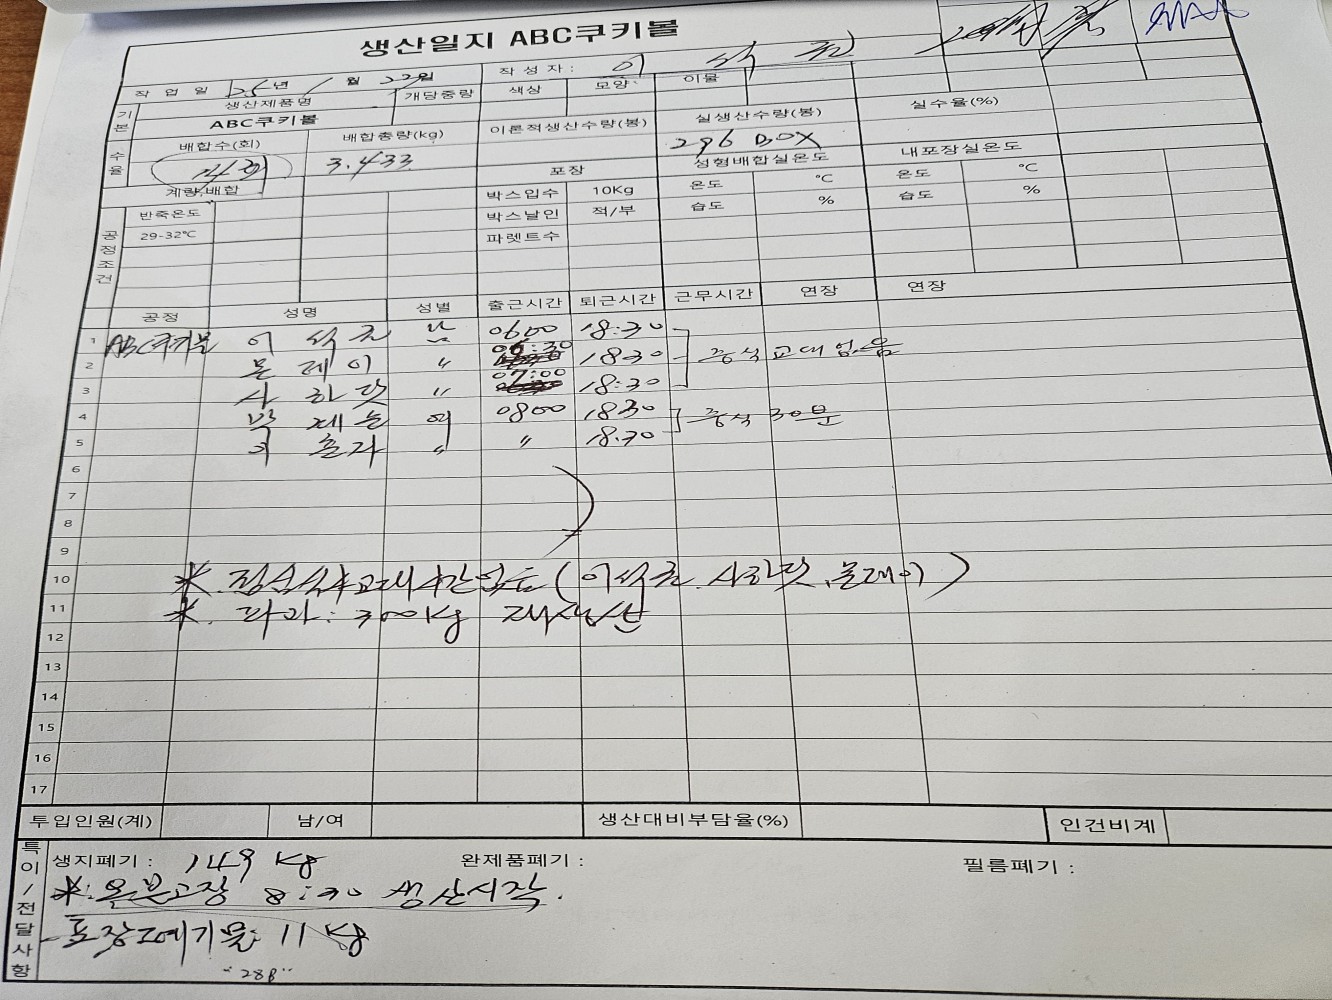 생산일지 ABC쿠키볼
작 업 일 26년 1월 22일 작 성 자 : 이 석 준
기본 생산제품명 개당중량 색상 모양 이물
ABC쿠키볼
수율 배합수(회) 배합총량(kg) 이론적생산수량(봉) 실생산수량(봉) 실수율(%)
14회 3.433 296 BOX
계량,배합 포장 성형배합실온도 내포장실온도
공정조건 반죽온도 박스입수 10Kg 온도 ℃ 온도 ℃
29-32℃ 박스날인 적/부 습도 % 습도 %
파렛트수
공정 성명 성별 출근시간 퇴근시간 근무시간 연장 연장
1 ABC쿠키볼 이 석 준 남 0600 18:30
2 몬 레 이 〃 06:30 18:30 중식 교대 없음
3 사 하 랏 〃 07:00 18:30
4 박 제 는 여 0800 18:30 중식 30분
5 춘 자 〃 〃 18:30
6
7
8
9
10 ※ 점심식사 교대시간 없음 (이석준. 사하랏, 몬레이)
11 ※. 파과 : 300Kg 재생산
12
13
14
15
16
17
투입인원(계) 남/여 생산대비부담율(%) 인건비계
특이/전달사항
생지폐기 : 149 kg 완제품폐기 : 필름폐기 :
※. 오븐고장 8:30 생산시작.
포장폐기물: 11 Kg
"288"